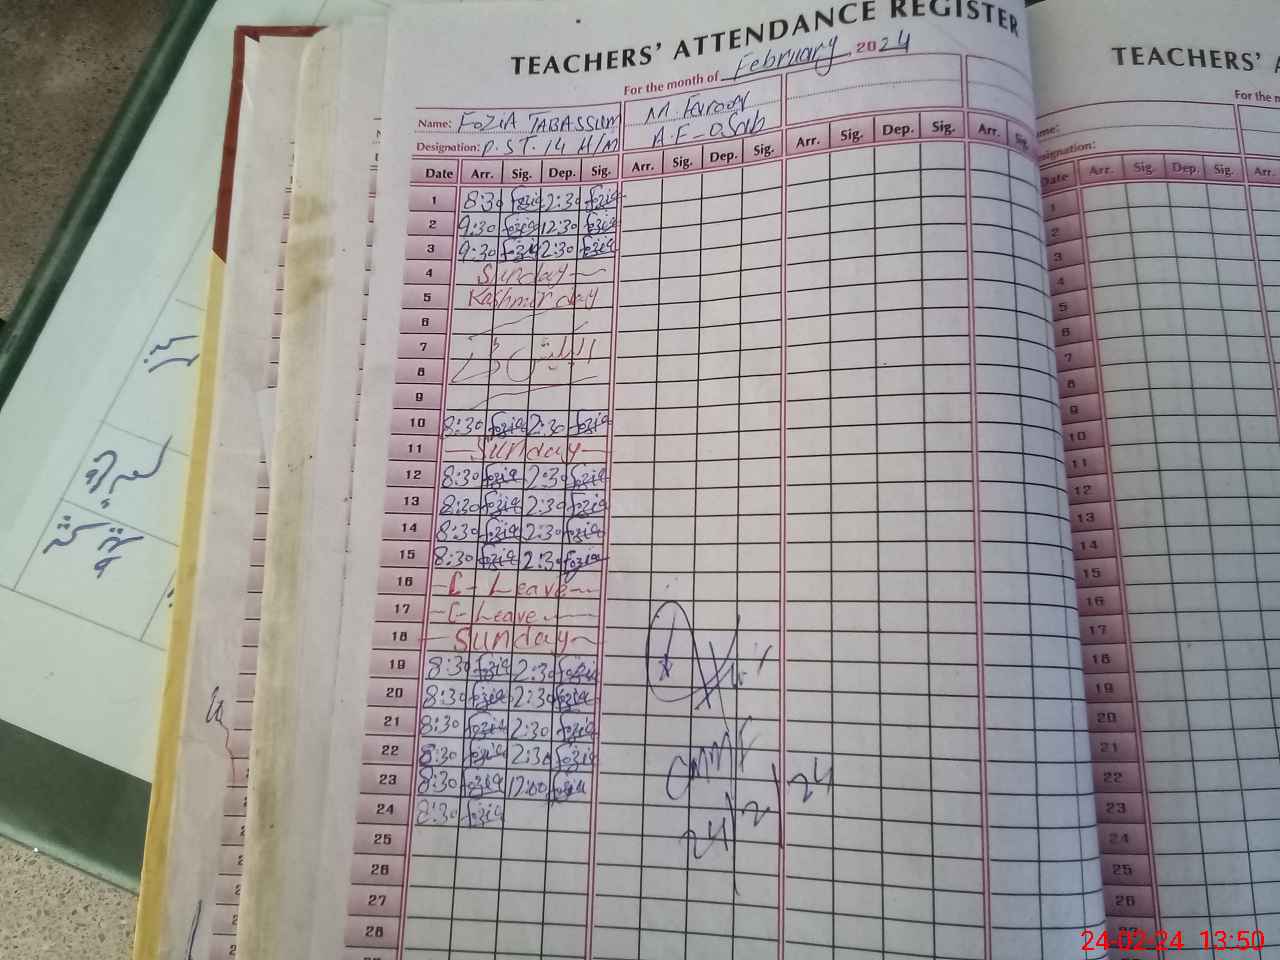 TEACHERS' ATTENDANCE REGISTER
For the month of February 2024
Name: FOZIA TABASSUM M Farooq
Designation: P.ST. 14 H/M
Date Arr. Sig. Dep. Sig. Arr. Sig. Dep. Sig. Arr. Sig. Dep. Sig. Arr. Sig.
1 8:30 fozia 2:30 fozia
2 9:30 fozia 12:30 fozia
3 9:30 fozia 2:30 fozia
4 Sunday
5 Kashmir day
6
7
8
9
10 8:30 fozia 2:30 fozia
11 Sunday
12 8:30 fozia 2:30 fozia
13 8:30 fozia 2:30 fozia
14 8:30 fozia 2:30 fozia
15 8:30 fozia 2:30 fozia
16 C-Leave
17 C-Leave
18 Sunday
19 8:30 fozia 2:30 fozia
20 8:30 fozia 2:30 fozia
21 8:30 fozia 2:30 fozia
22 8:30 fozia 2:30 fozia
23 8:30 fozia 12:00 fozia
24 8:30 fozia
24/2/24
25
26
27
28
TEACHERS'
For the
Designation:
Date Arr. Sig. Dep. Sig. Arr.
1
2
3
4
5
6
7
8
9
10
11
12
13
14
15
16
17
18
19
20
21
22
23
24
25
26
24-02-24 13:50